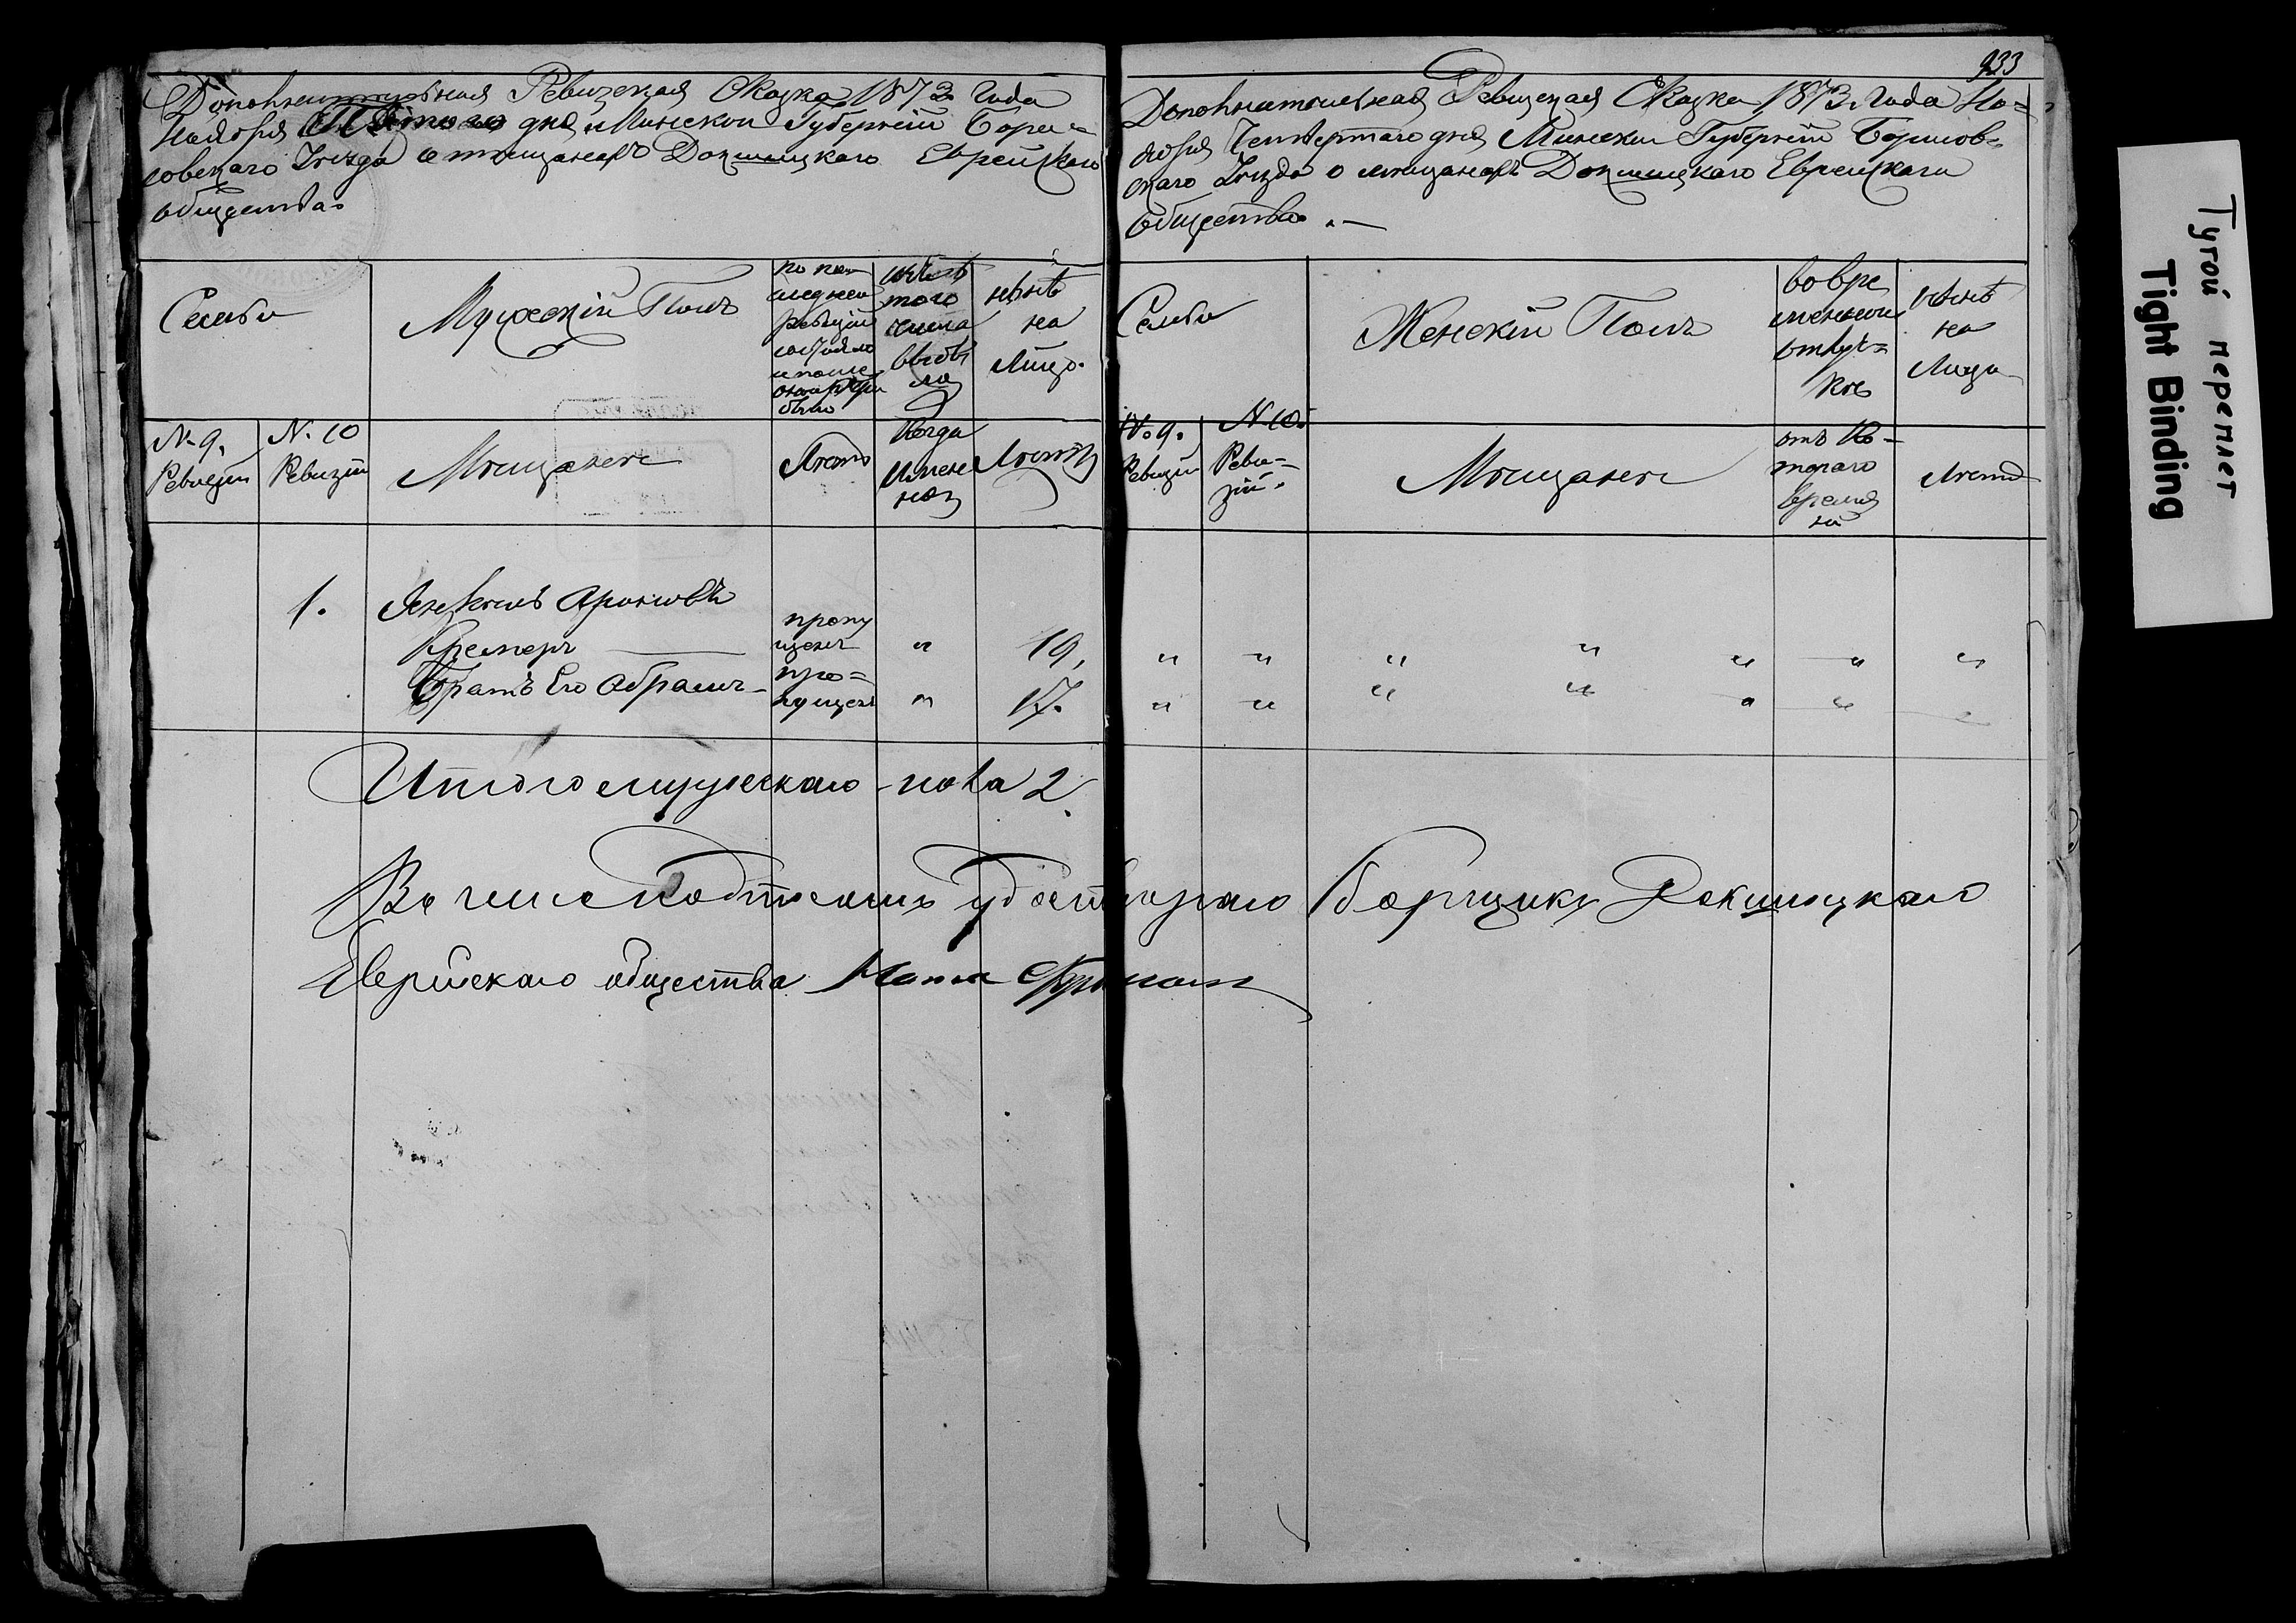 933
Дополнительная Ревизская Сказка 1873 Года
Ноября Пятого дня Минской Губерніи Бори=
совскаго Уѣзда о мѣщанахъ Докшицкаго Еврейскаго
общества
Семьи
Мужескій Полъ
по по
следней
ревизіи
состояло
и после
оной
было
изъ
того
числа
выбы
ло
нынѣ
на
Лицо.
N. 9.
Ревизіи
N. 10
Ревизіи
Мѣщане
Лѣта
Когда
Имен
но
Лѣта
1.
Янкель Ароновъ
Кремеръ
пропу
щенъ
"
19,
Братъ Его Абрамъ
про=
пущенъ
"
17.
Итого мужескаго пола 2.
Дополнительная Ревизская Сказка 1873 Года Но=
ября Четвертаго дня Минской Губерніи Борисов=
скаго Уѣзда о мѣщанахъ Докшицкаго Еврейскаго
общества. —
Семьи
Женскій Полъ
во вре
менной
отлуч=
кѣ
нынѣ
на
Лицо
N. 9.
Ревизіи
N 10.
Реви=
зіи.
Мѣщане
отъ Ко=
тораго
время
ни
Лѣта
" " " " " " "
" " " " " " "
Въ чемъ подписомъ удостоверяю Сборщикъ Докшицкаго
Еврейскаго общества
Тугой переплет
Tight Binding